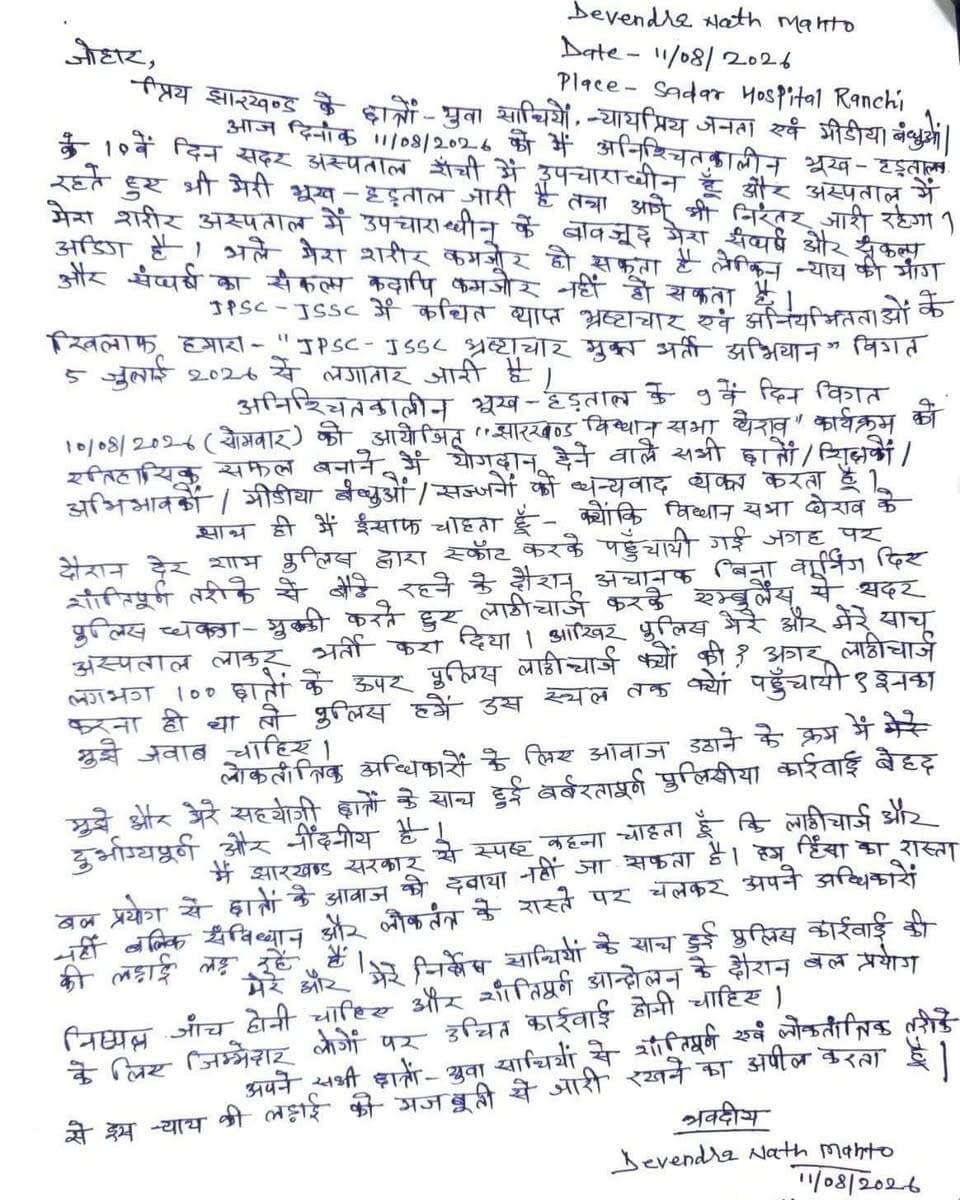 Devendra Nath Mahto
Date - 11/08/2026
Place - Sadar Hospital Ranchi
जोहार,
प्रिय झारखण्ड के छात्रों - युवा साथियों, न्यायप्रिय जनता एवं मीडीया बंधुओं।
आज दिनांक 11/08/2026 को मैं अनिश्चितकालीन भूख - हड़ताल
के 10वें दिन सदर अस्पताल राँची में उपचाराधीन हूँ और अस्पताल में
रहते हुए भी मेरी भूख - हड़ताल जारी है तथा आगे भी निरंतर जारी रहेगा।
मेरा शरीर अस्पताल में उपचाराधीन के बावजूद मेरा संघर्ष और संकल्प
अडिग है। भले मेरा शरीर कमजोर हो सकता है लेकिन न्याय की मांग
और संघर्ष का संकल्प कदापि कमजोर नहीं हो सकता है।
JPSC - JSSC में कथित व्याप्त भ्रष्टाचार एवं अनियमितताओं के
खिलाफ हमारा - "JPSC - JSSC भ्रष्टाचार मुक्त भर्ती अभियान" विगत
5 जुलाई 2026 से लगातार जारी है।
अनिश्चितकालीन भूख - हड़ताल के 9वें दिन विगत
10/08/2026 (सोमवार) को आयोजित "झारखण्ड विधान सभा घेराव" कार्यक्रम को
ऐतिहासिक सफल बनाने में योगदान देने वाले सभी छात्रों / शिक्षकों /
अभिभावकों / मीडीया बंधुओं / सज्जनों को धन्यवाद व्यक्त करता हूँ।
साथ ही मैं इंसाफ चाहता हूँ - क्योंकि विधान सभा घेराव के
दौरान देर शाम पुलिस द्वारा स्कॉट करके पहुँचायी गई जगह पर
शांतिपूर्ण तरीके से बैठे रहने के दौरान अचानक बिना वार्निंग दिए
पुलिस धक्का - मुक्की करते हुए लाठीचार्ज करके एम्बुलेंस से सदर
अस्पताल लाकर भर्ती करा दिया। आखिर पुलिस मेरे और मेरे साथ
लगभग 100 छात्रों के ऊपर पुलिस लाठीचार्ज क्यों की? अगर लाठीचार्ज
करना ही था तो पुलिस हमें उस स्थल तक क्यों पहुँचायी? इनका
मुझे जवाब चाहिए।
लोकतांत्रिक अधिकारों के लिए आवाज उठाने के क्रम में मेरे
मुझे और मेरे सहयोगी छात्रों के साथ हुई बर्बरतापूर्ण पुलिसीया कार्रवाई बेहद
दुर्भाग्यपूर्ण और नींदनीय है।
मैं झारखण्ड सरकार से स्पष्ट कहना चाहता हूँ कि लाठीचार्ज और
बल प्रयोग से छात्रों के आवाज को दबाया नहीं जा सकता है। हम हिंसा का रास्ता
नहीं बल्कि संविधान और लोकतंत्र के रास्ते पर चलकर अपने अधिकारों
की लड़ाई लड़ रहे हैं।
मेरे और मेरे निर्दोष साथियों के साथ हुई पुलिस कार्रवाई की
निष्पक्ष जांच होनी चाहिए और शांतिपूर्ण आन्दोलन के दौरान बल प्रयोग
के लिए जिम्मेदार लोगों पर उचित कार्रवाई होनी चाहिए।
अपने सभी छात्रों - युवा साथियों से शांतिपूर्ण एवं लोकतांत्रिक तरीके
से इस न्याय की लड़ाई को मजबूती से जारी रखने का अपील करता हूँ।
भवदीय
Devendra Nath Mahto
11/08/2026